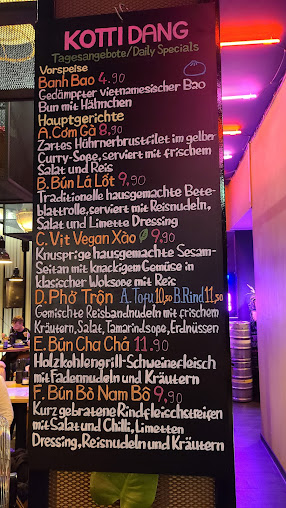 KOTTI DANG
Tagesangebote/Daily Specials
Vorspeise
Banh Bao 4.90
Gedämpfter vietnamesischer Bao
Bun mit Hähnchen
Hauptgerichte
A. Cơm Gà 8.90
Zartes Hühnerbrustfilet im gelber
Curry-Soße, serviert mit frischem
Salat und Reis
B. Bún Lá Lốt 9.90
Traditionelle hausgemachte Bete-
blattrolle, serviert mit Reisnudeln,
Salat und Limette Dressing
C. Vịt Vegan Xào 9.90
Knusprige hausgemachte Sesam-
Seitan mit knackigem Gemüse in
klassischer Woksoße mit Reis
D. Phở Trộn A. Tofu 10,50 B. Rind 11,50
Gemischte Reisbandnudeln mit crischem
Kräutern, Salat, Tamarindsoße, Erdnüssen
E. Bún Cha Cá 11.90
Holzkohlengrill-Schweinefleisch
mit Fadennudeln und Kräutern
F. Bún Bò Nam Bô 9,90
Kurz gebratene Rindfleischstreifen
mit Salat und Chili, Limetten
Dressing, Reisnudeln und Kräutern